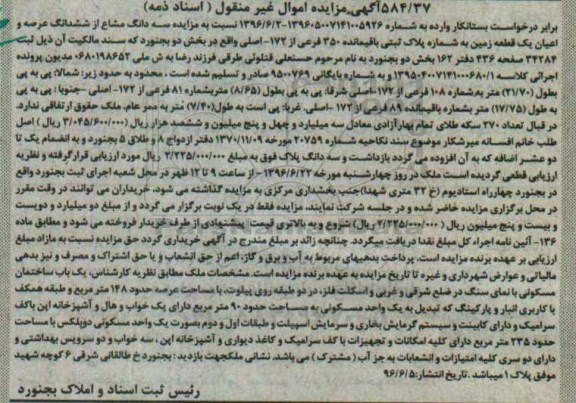 ۵۸۴/۳۷ آگهی مزایده اموال غیر منقول ( اسناد ذمه)
برابر درخواست بستانکار وارده به شماره ۱۳۹۶۰۵۰۰۷۱۴۱۰۰۵۹۲۶-۱۳۹۶/۶/۲ نسبت به مزایده سه دانگ مشاع از ششدانگ عرصه و
اعیان یک قطعه زمین به شماره پلاک ثبتی باقیمانده ۳۵۰ فرعی از ۱۷۲-اصلی واقع در بخش دو بجنورد که سند مالکیت آن ذیل ثبت
۳۴۲۸۴ صفحه ۴۳۶ دفتر ۱۶۲ بخش دو بجنورد به نام مرحوم حسنعلی قتلولی طرقی فرزند رضا به ش ملی ۰۶۸۰۱۹۸۶۵۲ مدیون پرونده
اجرائی کلاسه ۱۳۹۵۰۴۰۰۷۱۴۱۰۰۰۶۸۰/۱ و به شماره بایگانی ۹۵۰۰۷۶۹ صادر و تسلیم شده است . محدود به حدود زیر: شمالا: پی به پی
بطول (۲۱/۷۰) متر به شماره ۱۰۸ فرعی از ۱۷۲-اصلی شرقا: پی به پی بطول (۸/۶۵) متر بشماره ۸۱ فرعی از ۱۷۲-اصلی -جنوبا: پی به پی
به طول (۱۷/۷۵) متر بشماره باقیمانده ۸۹ فرعی از ۱۷۲-اصلی. غربا: پی است به طول(۷/۴۰) متر به ممر عام. ملک حقوق ارتفاقی ندارد.
در قبال تعداد ۲۷۰ سکه طلای تمام بهار آزادی معادل سه میلیارد و چهل و پنج میلیون و ششصد هزار ریال (۳/۰۴۵/۶۰۰/۰۰۰ ریال ) اصل
طلب خانم افسانه میرشکار موضوع سند نکاحیه شماره ۲۰۷۵۹ مورخه ۱۳۷۰/۱۱/۰۹ دفتر ازدواج ۸ و طلاق ۵ بجنورد و به انضمام یک تا
دو عشر اضافه که به آن افزوده می گردد بازداشت و سه دانگ پلاک فوق به مبلغ ۲/۲۲۵/۰۰۰/۰۰۰ ریال مورد ارزیابی قرار گرفته و نظریه
ارزیابی قطعی گردیده است ملک در روز چهارشنبه مورخه ۱۳۹۶/۶/۲۲ - از ساعت ۹ تا ۱۲ ظهر در محل شعبه اجرای ثبت بجنورد واقع
در بجنورد چهارراه استادیوم (خ ۳۲ متری شهدا)جنب بخشداری مرکزی به مزایده گذاشته می شود. خریداران می توانند در وقت مقرر
در محل برگزاری مزایده حاضر شده و در جلسه شرکت نمایند. مزایده فقط در یک نوبت برگزار می گردد و از مبلغ دو میلیارد و دویست
و بیست و پنج میلیون ریال ( ۲/۲۲۵/۰۰۰/۰۰۰ ریال) شروع و به بالاترین قیمت پیشنهادی از طرف خریدار فروخته می شود و مطابق ماده
۱۳۶- آئین نامه اجراء کل مبلغ نقدا دریافت میگردد. چنانچه زائد بر مبلغ مندرج در آگهی خریداری گردد حق مزایده نسبت به مازاد مبلغ
ارزیابی بر عهده برنده مزایده است. پرداخت بدهیهای مربوط به آب و برق و گاز، اعم از حق انشعاب و یا حق اشتراک و مصرف و نیز بدهی
مالیاتی و عوارض شهرداری و غیره تا تاریخ مزایده به عهده برنده مزایده است. مشخصات ملک مطابق نظریه کارشناس، یک باب ساختمان
مسکونی با نمای سنگ در ضلع شرقی و غربی و اسکلت فلز، در دو طبقه روی پیلوت، با مساحت عرصه حدود ۱۴۸ متر مربع و طبقه همکف
با کاربری انبار و پارکینگ که تبدیل به یک واحد مسکونی به مساحت حدود ۹۰ متر مربع دارای یک خواب و هال و آشپزخانه اپن با کف
سرامیک و دارای کابینت و سیستم گرمایش بخاری و سرمایش اسپیلت و طبقات اول و دوم بصورت یک واحد مسکونی دوپلکس با مساحت
حدود ۲۳۵ متر مربع دارای کلیه امکانات و تجهیزات با کف سرامیک و کاغذ دیواری و آشپزخانه اپن ، سه خواب و دو سرویس بهداشتی و
دارای دو سری کلیه امتیازات و انشعابات به جز آب ( مشترک ) می باشد. نشانی ملکجهت بازدید: بجنورد خ طالقانی شرقی ۶ کوچه شهید
موفق پلاک ۱ میباشد .تاریخ انتشار:۹۶/۶/۵
رئیس ثبت اسناد و املاک بجنورد